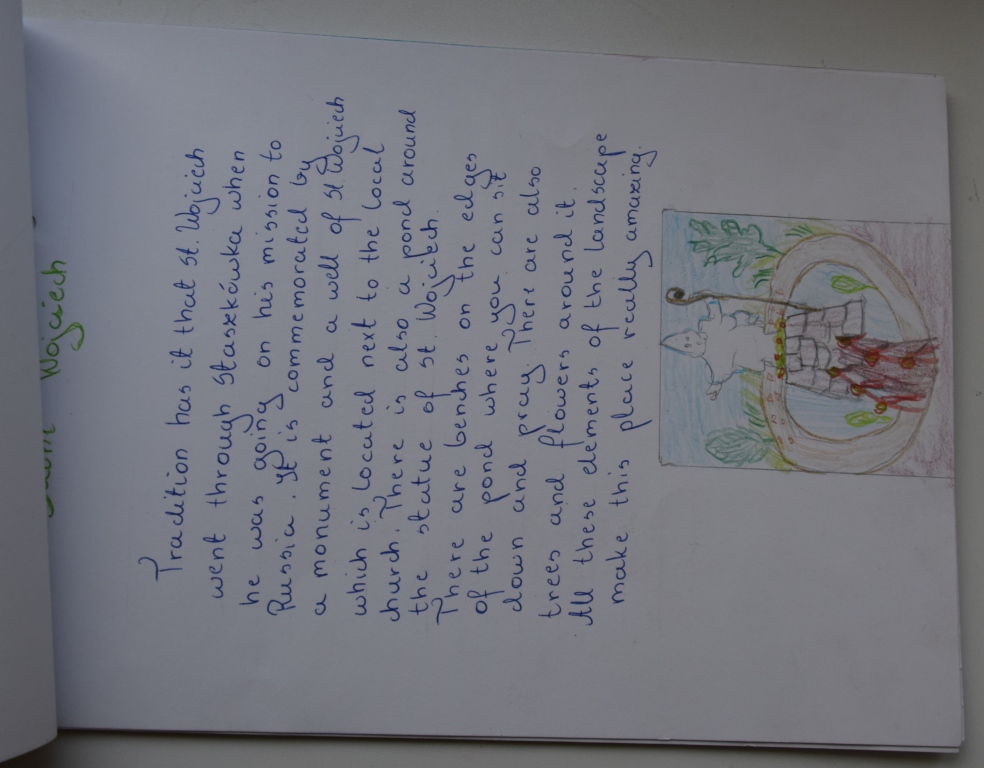 Wojciech
Tradition has it that St. Wojciech
went through Staszkówka when
he was going on his mission to
Russia. It is commemorated by
a monument and a well of St Wojciech
which is located next to the local
church. There is also a pond around
the statue of St. Wojciech.
There are benches on the edges
of the pond where you can sit
down and pray. There are also
trees and flowers around it.
All these elements of the landscape
make this place really amazing.